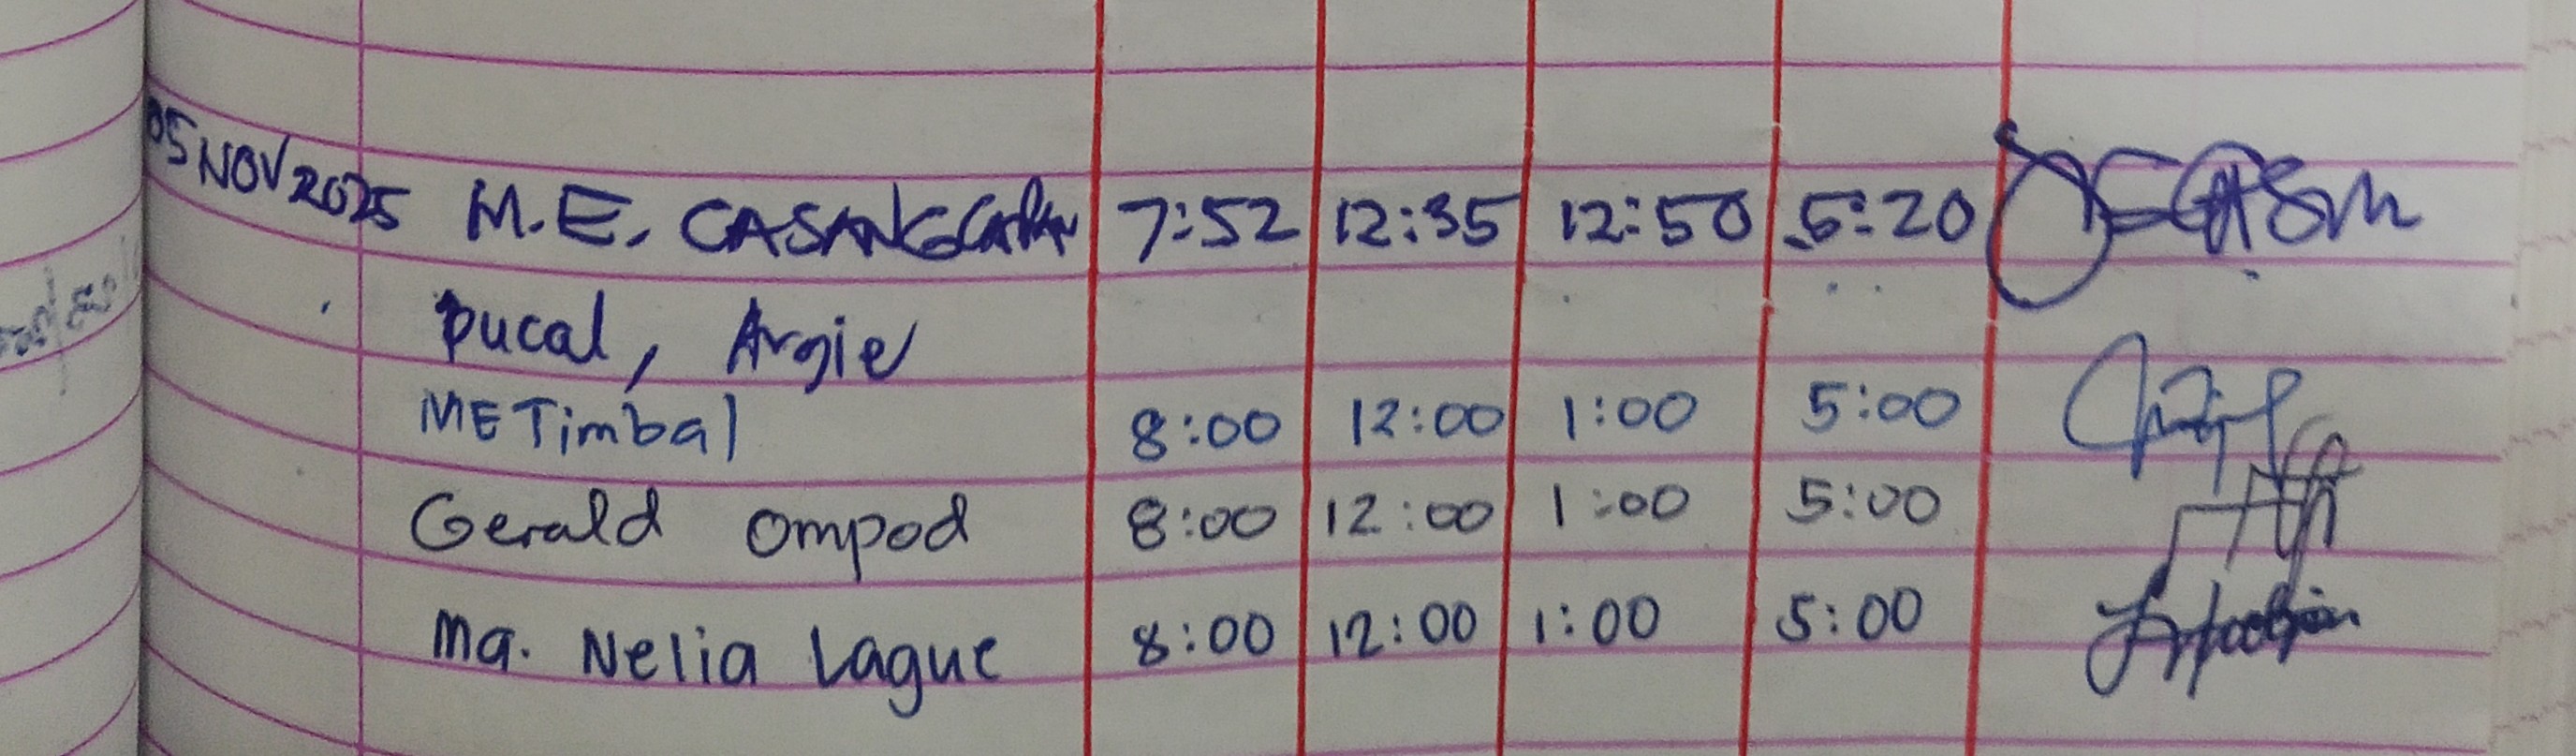 05 NOV 2025 M.E. 7:52 12:35 12:50 5:20
Ducal, Argie
ME Timbal 8:00 12:00 1:00 5:00
Gerald Ompod 8:00 12:00 1:00 5:00
Ma. Nelia Lague 8:00 12:00 1:00 5:00